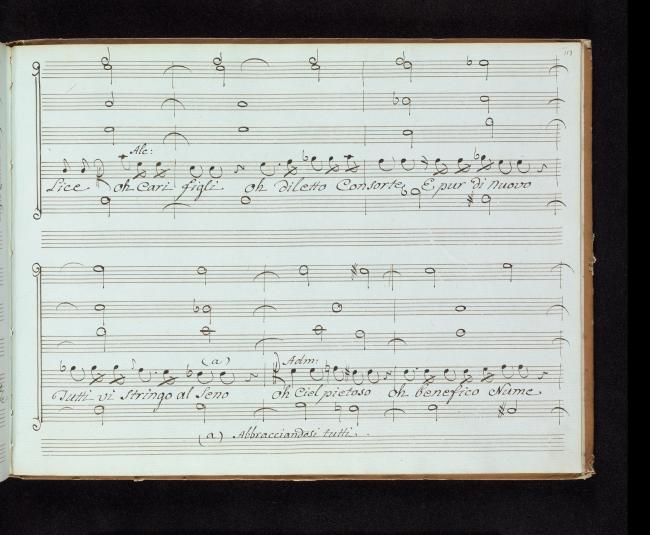 113
Alc:
Lice oh Cari figli oh diletto Consorte E pur di nuovo
(a) Adm:
Tutti vi Stringo al Seno oh Ciel pietoso oh benefico Nume
(a) Abbracciandosi tutti.